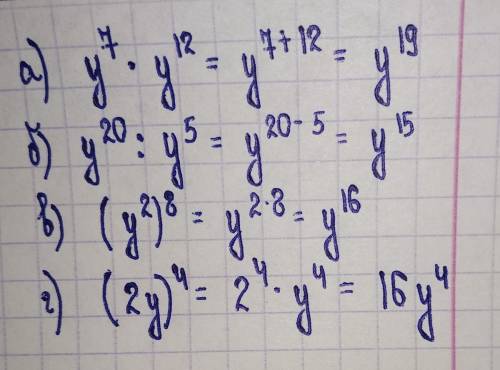 а) y⁷ · y¹² = y⁷⁺¹² = y¹⁹
б) y²⁰ : y⁵ = y²⁰⁻⁵ = y¹⁵
в) (y²)⁸ = y²·⁸ = y¹⁶
г) (2y)⁴ = 2⁴ · y⁴ = 16y⁴